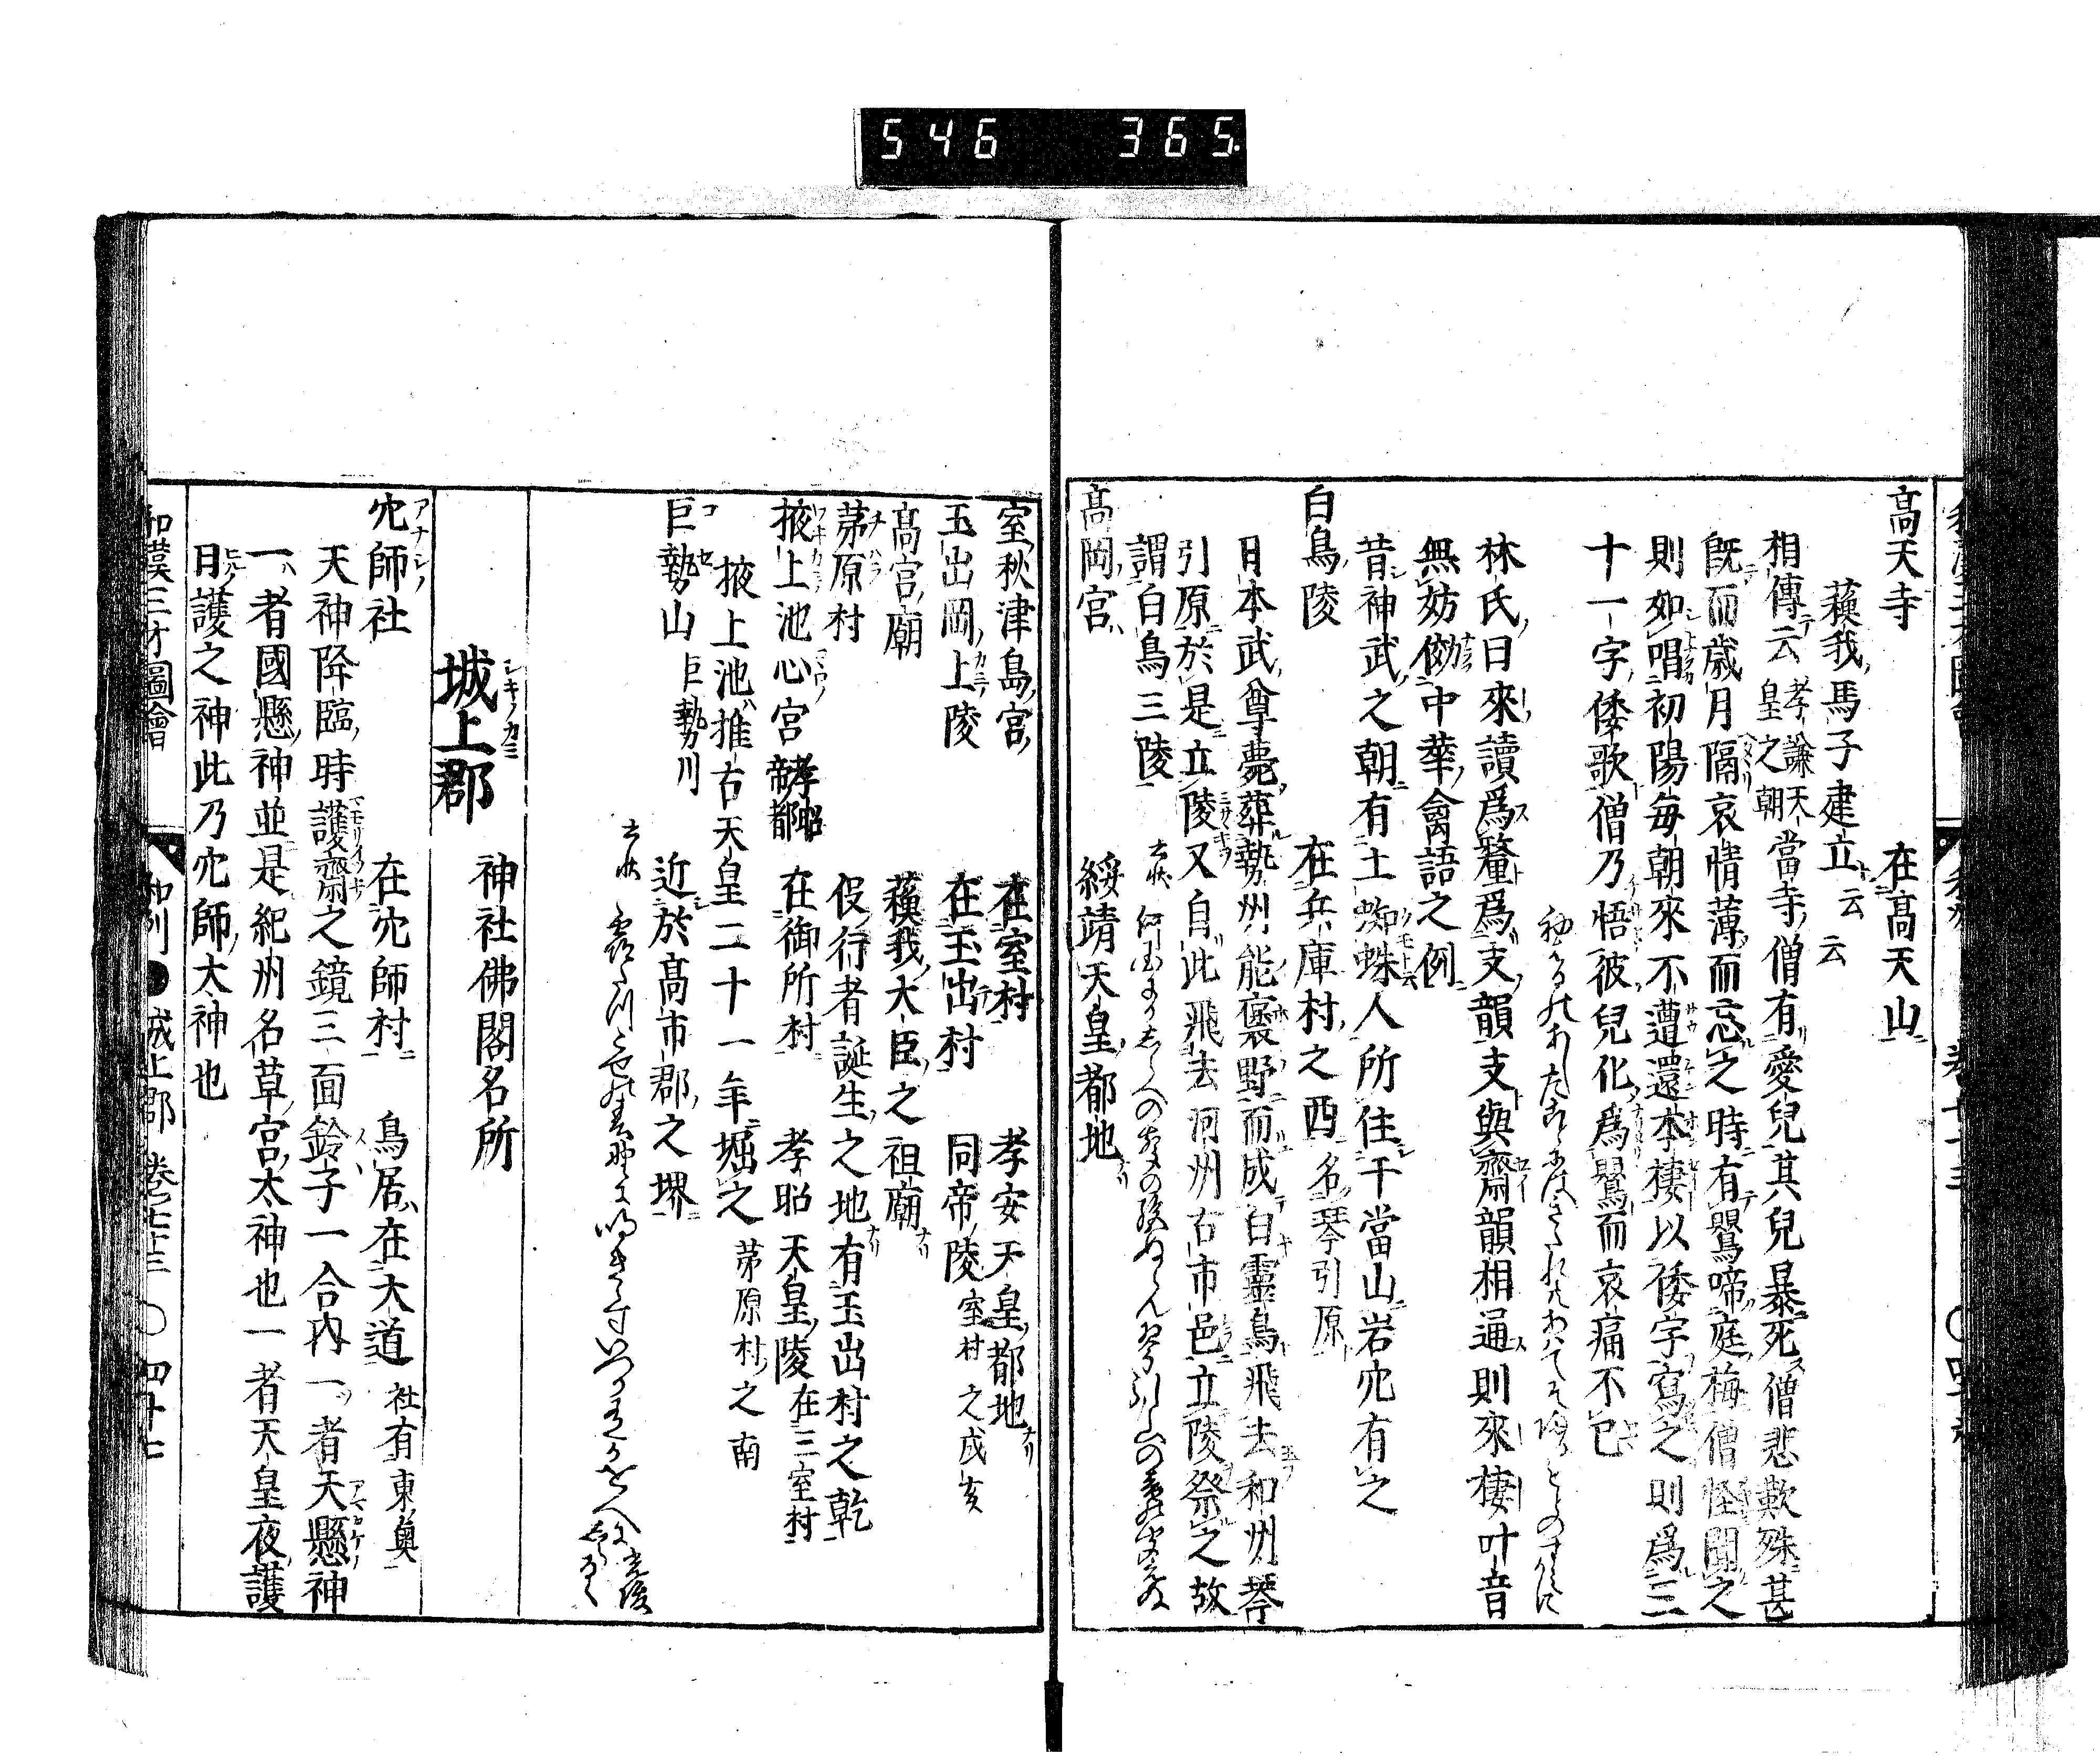 546 365
高天寺 在高天山
蘓我馬子建立云云
相傳云孝謙天皇之朝當寺僧有愛兒其兒暴死僧悲歎殊甚
既而歳月隔哀情薄而忘之時有鸎啼庭梅僧怪聞之
則如唱初陽毎朝來不遭還本棲以倭字寫之則爲三
十一字倭歌僧乃悟彼兒化爲鸎而哀痛不已
林氏曰來讀爲釐爲支韻支與齋韻相通則來棲叶音
無妨傚中華禽語之例
昔神武之朝有土蜘蛛人所住于當山岩穴有之
白鳥陵 在兵庫村之西名琴引原
日本武尊薨葬勢州能褒野而成白靈鳥飛去和州琴
引原於是立陵又自此飛去河州古市邑立陵祭之故
謂白鳥三陵
高岡宮 綏靖天皇都地
室秋津島宮 在室村 孝安天皇都地
玉出岡上陵 在玉出村 同帝陵室村之戌亥
高宮廟 蘓我大臣之祖廟
茅原村 役行者誕生之地有玉出村之乾
掖上池心宮孝昭帝都 在御所村 孝昭天皇陵在三室村
掖上池推古天皇二十一年堀之茅原村之南
巨勢山 巨勢川 近於高市郡之堺
城上郡 神社佛閣名所
穴師社 在穴師村 鳥居在大道社有東奥
天神降臨時護齋之鏡三面鈴子一合內一者天懸神
一者國懸神並是紀州名草宮太神也一者天皇夜護
日護之神此乃穴師大神也
和漢三才圖會 和州●城上郡 卷七十三 ○四十七